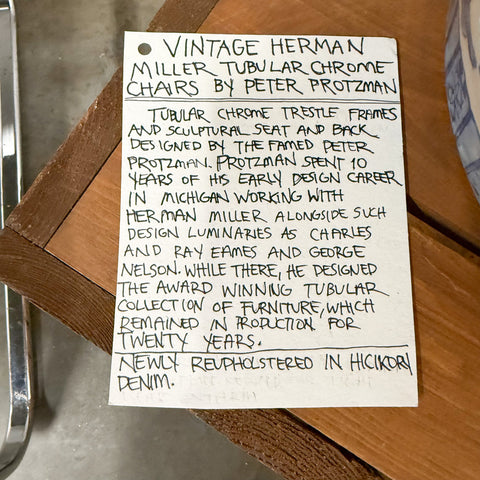 VINTAGE HERMAN
MILLER TUBULAR CHROME
CHAIRS BY PETER PROTZMAN
TUBULAR CHROME TRESTLE FRAMES
AND SCULPTURAL SEAT AND BACK
DESIGNED BY THE FAMED PETER
PROTZMAN. PROTZMAN SPENT 10
YEARS OF HIS EARLY DESIGN CAREER
IN MICHIGAN WORKING WITH
HERMAN MILLER ALONGSIDE SUCH
DESIGN LUMINARIES AS CHARLES
AND RAY EAMES AND GEORGE
NELSON. WHILE THERE, HE DESIGNED
THE AWARD WINNING TUBULAR
COLLECTION OF FURNITURE, WHICH
REMAINED IN PRODUCTION FOR
TWENTY YEARS.
NEWLY REUPHOLSTERED IN HICIKORY
DENIM.